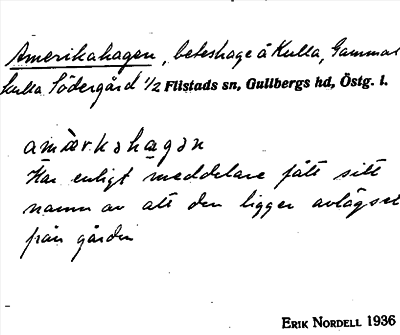 Amerikahagen, beteshage å Kulla, Gammal
kulla Södergård 1/2 Flistads sn, Gullbergs hd, Östg. l.
Har enligt meddelare fått sitt
namn av att den ligger avlägset
från gården
ERIK NORDELL 1936